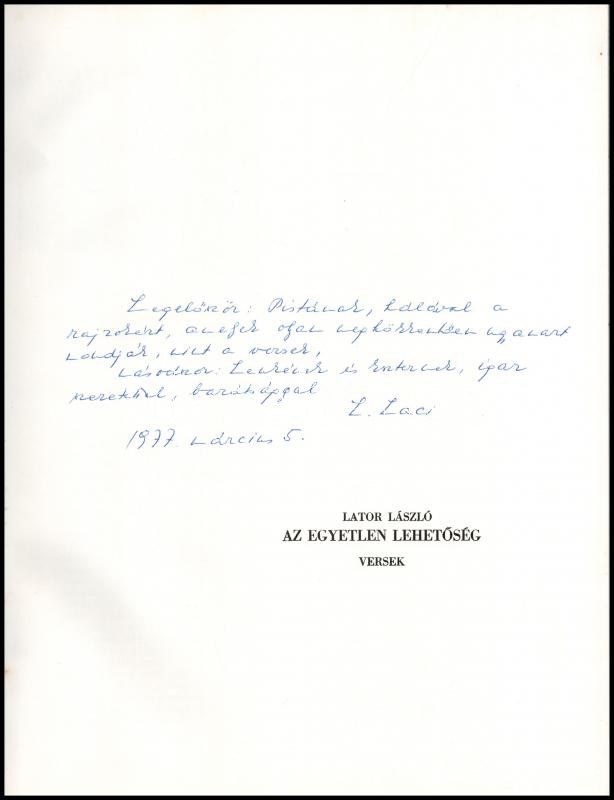 Legelőször: Pistának, hálával a
rajzokért, amelyek olyan megkönnyebben ugyanazt
mondják, mint a versek,
másodszor: és Eszternek, igaz
szeretettel, barátsággal
L. Laci
1977. március 5.
LATOR LÁSZLÓ
AZ EGYETLEN LEHETŐSÉG
VERSEK